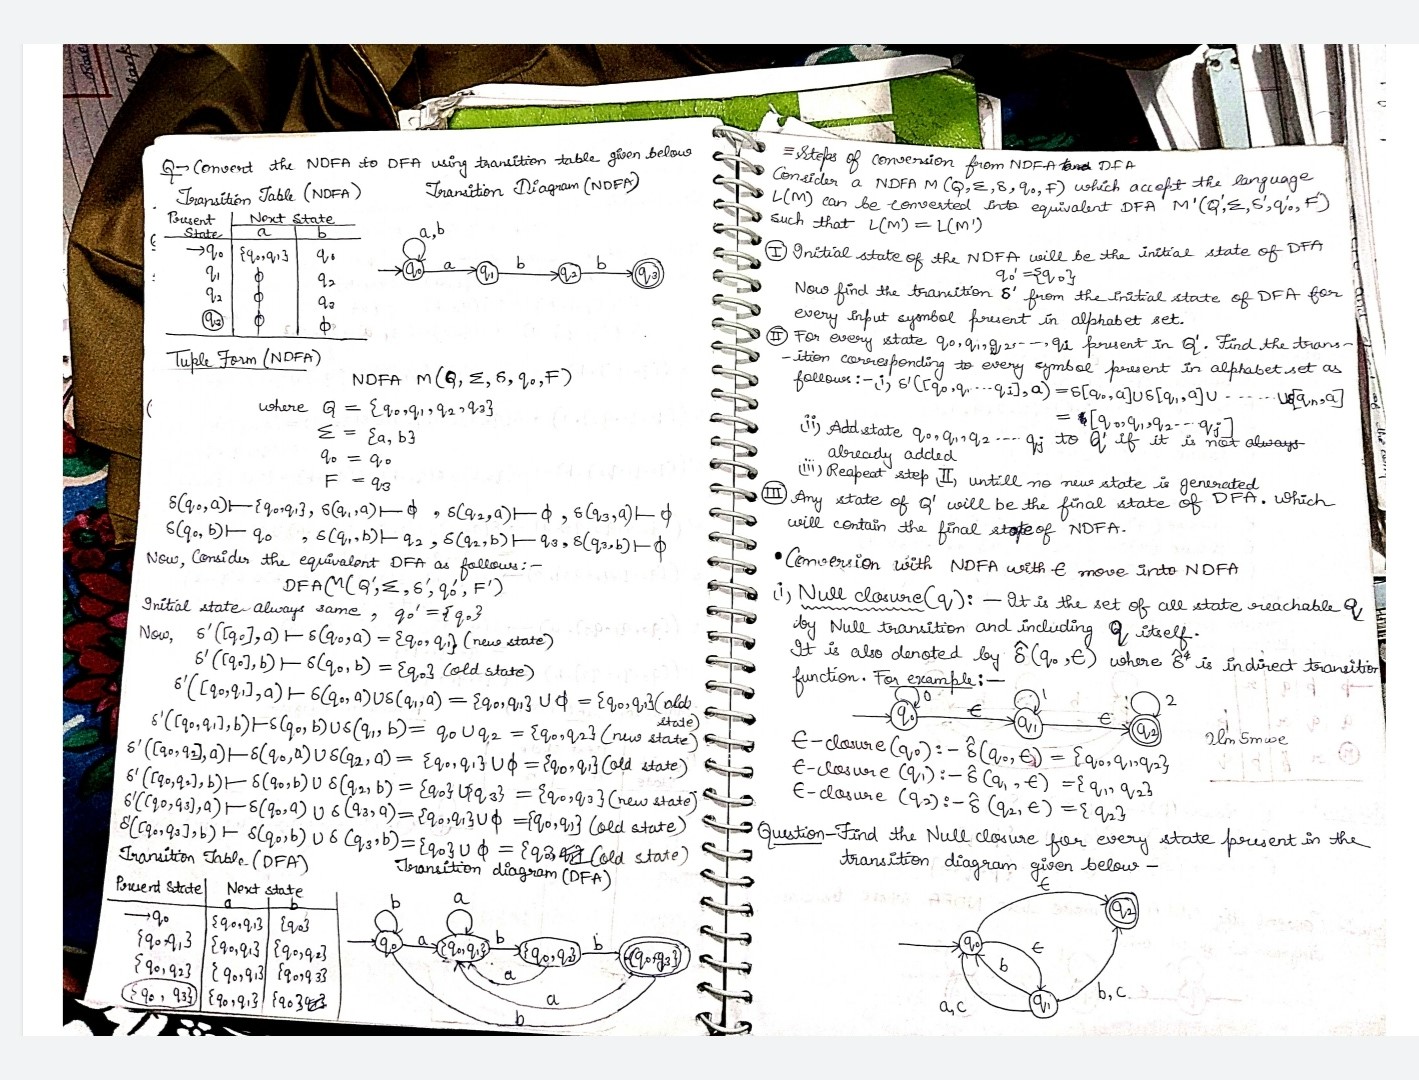 Q→ Convert the NDFA to DFA using transition table given below
Transition Table (NDFA)
Transition Diagram (NDFA)
Present State | Next State
a | b
→q0 | {q0,q1} | q0
q1 | ϕ | q2
q2 | ϕ | q3
q3 | ϕ | ϕ
a,b
q0 a q1 b q2 b q3
Tuple Form (NDFA)
NDFA M(Q, Σ, δ, q0, F)
where Q = {q0,q1,q2,q3}
Σ = {a, b}
q0 = q0
F = q3
δ(q0,a)⊢{q0,q1}, δ(q1,a)⊢ϕ , δ(q2,a)⊢ϕ, δ(q3,a)⊢ϕ
δ(q0,b)⊢ q0 , δ(q1,b)⊢q2, δ(q2,b)⊢q3, δ(q3,b)⊢ϕ
Now, Consider the equivalent DFA as follows:-
DFA(M(Q',Σ, δ', q0', F')
Initial state always same, q0' = {q0}
Now, δ'([q0],a)⊢δ(q0,a) = {q0,q1} (new state)
δ'([q0],b)⊢δ(q0,b) = {q0} (old state)
δ'([q0,q1],a)⊢δ(q0,a)∪δ(q1,a) = {q0,q1}∪ϕ = {q0,q1}(old state)
δ'([q0,q1],b)⊢δ(q0,b)∪δ(q1,b)= q0∪q2 = {q0,q2}(new state)
δ'([q0,q2],a)⊢δ(q0,a)∪δ(q2,a) = {q0,q1}∪ϕ={q0,q1}(old state)
δ'([q0,q2],b)⊢δ(q0,b)∪δ(q2,b)={q0}∪{q3} = {q0,q3}(new state)
δ'([q0,q3],a)⊢δ(q0,a)∪δ(q3,a)={q0,q1}∪ϕ ={q0,q1}(old state)
δ'([q0,q3],b)⊢ δ(q0,b)∪δ(q3,b)={q0}∪ϕ = {q0} (old state)
Transition Table (DFA)
Transition diagram (DFA)
Present State | Next state
a | b
→q0 | {q0,q1} | {q0}
{q0,q1} | {q0,q1} | {q0,q2}
{q0,q2} | {q0,q1} | {q0,q3}
{q0,q3} | {q0,q1} | {q0}
b a
q0 a {q0,q1} b {q0,q2} b {q0,q3}
a
a
b
Steps of conversion from NDFA DFA
Consider a NDFA M(Q,Σ,δ,q0,F) which accept the language
L(M) can be converted into equivalent DFA M'(Q',Σ,δ',q0',F')
such that L(M) = L(M')
I Initial state of the NDFA will be the initial state of DFA
q0'={q0}
Now find the transition δ' from the initial state of DFA for
every input symbol present in alphabet set.
II For every state q0,q1,q2---,qi present in Q'. Find the trans-
-ition corresponding to every symbol present in alphabet set as
follows:- i, δ'([q0,q1----qi],a) = δ[q0,a]∪δ[q1,a]∪-------∪δ[qn,a]
= [q0,q1,q2---qj]
ii) Add state q0,q1,q2----qj to Q' if it is not always
already added
(iii) Reapeat step II, untill no new state is generated
III Any state of Q' will be the final state of DFA. which
will contain the final state of NDFA.
• Conversion with NDFA with ϵ move into NDFA
(i) Null closure(q):- It is the set of all state reachable q
by Null transition and including Q itself.
It is also denoted by δ̂(q0,ϵ) where δ̂ is indirect transition
function. For example:-
0 1 2
q0 ϵ q1 ϵ q2
ϵ-closure(q0):- δ̂(q0,ϵ) = {q0,q1,q2}
ϵ-closure(q1):- δ̂(q1,ϵ) = {q1,q2}
ϵ-closure (q2):- δ̂(q2,ϵ) = {q2}
Question-Find the Null closure for every state present in the
transition diagram given below-
ϵ
q2
q0
ϵ
b
b,c
a,c
q1